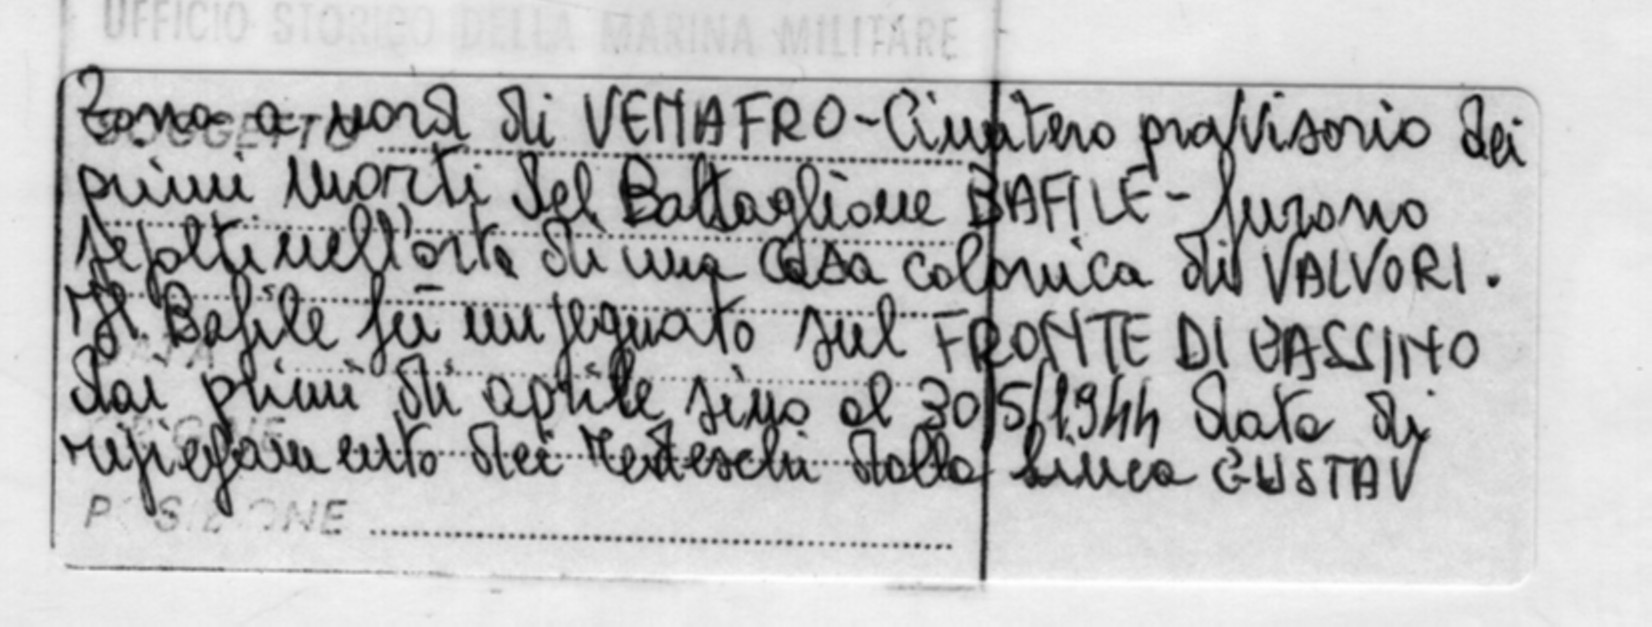 UFFICIO STORICO DELLA MARINA MILITARE
SOGGETTO
Zona a nord di VENAFRO - Cimitero provvisorio dei
primi morti del Battaglione BAFILE - furono
sepolti nell'orto di una casa colonica di VALVORI.
Il Bafile fù impegnato sul FRONTE DI CASSINO
DATA
dai primi di aprile sino al 30/5/1944 data di
ripiegamento dei Tedeschi dalla linea GUSTAV
POSIZIONE